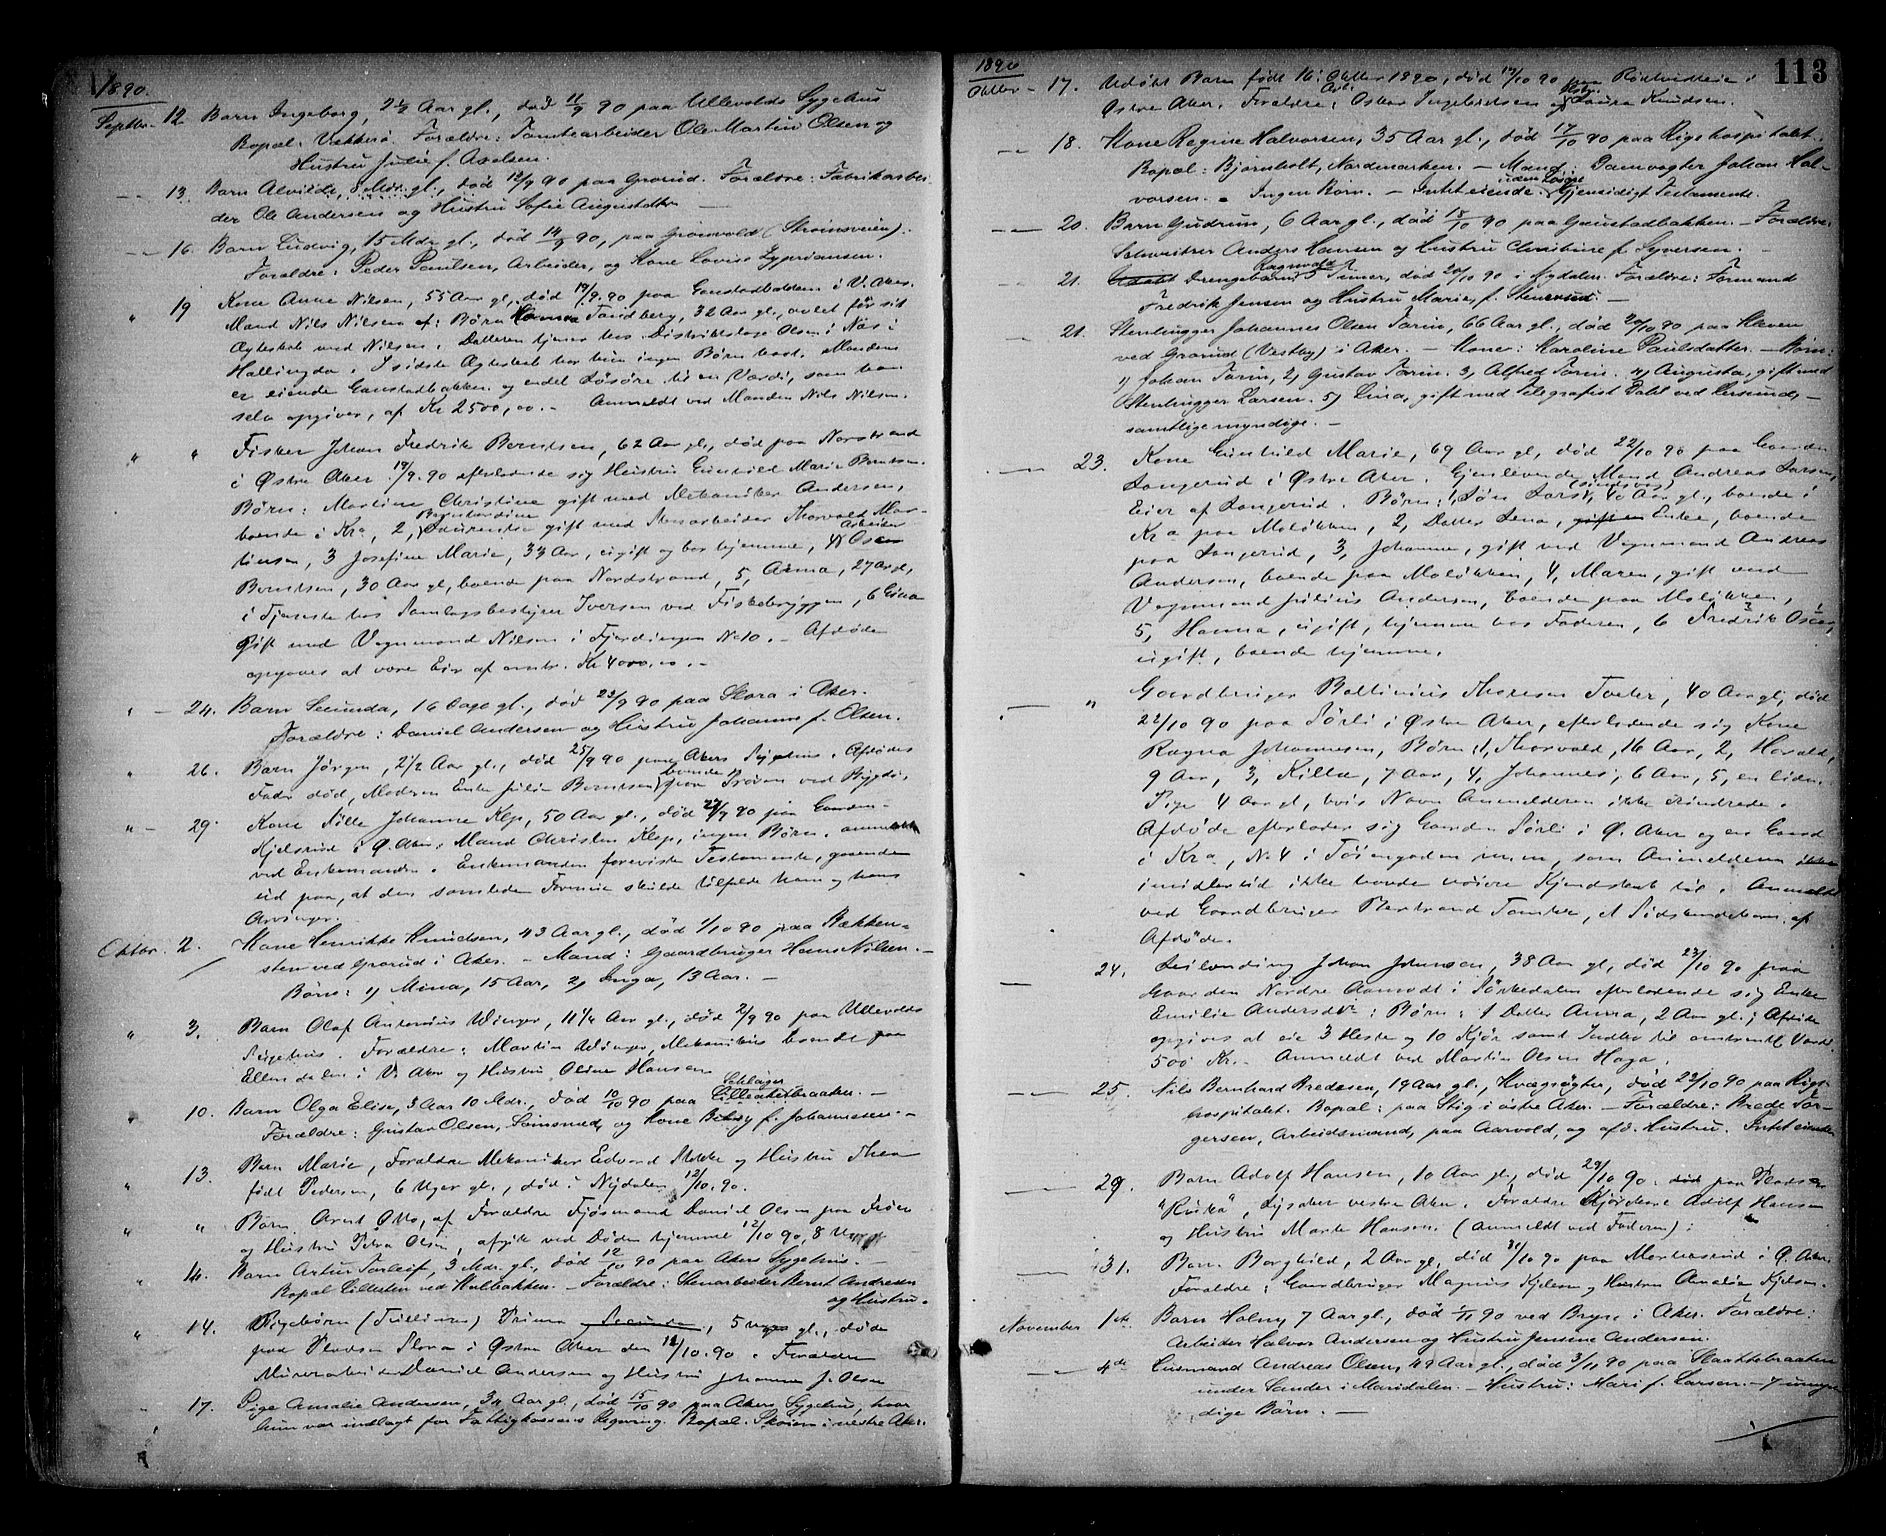 1890.
Septbr. 12. Barn Ingeborg, 2½ Aar gl., død 11/9 90 paa Ullevolds Sygehus
Bopæl: Vækkerø. Forældre: Tomtearbeider Ole Martin Olsen og
Hustru Julie f. Axelsen.
— 13. Barn Alvilde, 8 Mdr. gl., død 12/9 90 paa Grorud. Forældre: Fabrikarbei-
der Ole Andersen og Hustru Sofie Augustdtr.
— 16. Barn Ludvig, 15 Mdr. gl., død 14/9 90, paa Grønvold (Strømsveien).
Forældre: Peder Paulsen, Arbeider, og Kone Lovise Zyprianssen.
" 19 Kone Anne Nilsen, 55 Aar gl., død 19/9.90 paa Gaustadbakken i V. Aker.
Mand Nils Nilsen af: Børn Hanna Tandberg, 32 Aar gl., avlet før sit
Ægteskab med Nilsen. Datteren tjener hos Distriktslæge Olsen i Næs i
Hallingda. I sidste Ægteskab har hun ingen Børn havt. Manden
er eiende Gaustadbakken og endel Løsøre til en Værdi, som han
selv opgiver, af Kr 2500,00. - Anmeldt ved Manden Nils Nilsen.
" " Fisker Johan Fredrik Berntsen, 62 Aar gl., død paa Norstrand
i Østre Aker 19/9.90 efterladende sig Hustru Gunhild Marie Berntsen.
Børn: Martine Christine gift med Mekaniker Andersen,
boende i Kra, 2, Bernhardine Laurentse gift med Stenarbeider Thorvald Mar-
tinsen, 3 Josefine Marie, 33 Aar, ugift og bor hjemme, 4, Arbeider Oscar
Berntsen, 30 Aar gl, boende paa Nordstrand, 5, Anna, 27 Ar gl,
i Tjeneste hos Samlagsbestyrer Iversen ved Fiskebryggen, 6 Gina
Gift med Vognmand Nilsen i Fjerdingen No 10. - Afdøde
opgives at være Eier af omtr. Kr 4000.00. -
" — 24. Barn Secunda, 16 Dage gl., død 23/9 90 paa Flora i Aker.
Forældre: Daniel Andersen og Hustru Johanne f. Olsen.
" 26. Barn Jørgen, 2½ Aar gl., død 25/9 90 paa Akers Sygehus. Afdødes
Fader død, Moderen Enke Julie Berntsen, boende paa Trøen ved Bygdø.
" — 29. Kone Sille Johanne Klep, 50 Aar gl., død 27/9 90 paa Gaarden
Kjelsrud i Ø. Aker. Mand Christen Klep, ingen Børn. anmeldt
ved Enkemanden. Enkemanden foreviste Testamente, gaaende
ud paa, at den samlede Formue skulde tilfalde ham og hans
Arvinger.
Oktbr. 2. Kone Henrikke Knudsen, 43 Aar gl., død 1/10 90 paa Bækken-
sten ved Grorud i Aker. - Mand: Gaardbruger Hans Nilsen. -
Børn: 1) Mina, 15 Aar, 2, Inga, 13 Aar. -
" 3. Barn Olaf Antonius Winger, 11¼ Aar gl., død 2/9 90 paa Ullevolds
Sygehus. Forældre: Martin Winger, Mekanikus boende paa
Ellendalen i V. Aker og Hustru Oline Hansen
" 10. Barn Olga Elise, 3 Aar 10 Mdr., død 10/10 90 paa Schlager Lilleakerbraaten. -
Forældre: Gustav Olsen, Læsmed, og Kone Betsy f. Johannesen. -
" 13. Barn Marie, Forældre Mekaniker Edvard Stokke og Hustru Thea
født Pedersen, 6 Uger gl., død i Nydalen 12/10.90.
" " Barn Arnt Otto, af Forældre Fjøsmand Daniel Olsen paa Frøen
og Hustru Petra Olsen, afgik ved Døden hjemme 12/10 90, 8 Uger
" 14. Barn Artur Torleif, 3 Mdr. gl., død 12/10 90 paa Akers Sygehus. -
Bopæl Lillesten ved Hulbakken. - Forældre: Stenarbeider Bernt Andresen
og Hustru.
" 14. Pigebørn (Trillinger) Prima Secunda, 5 uger gl., døde
paa Pladsen Flora i Østre Aker den 12/10.90. Forældre
Murerarbeider Daniel Andersen og Hustru Johanne f. Olsen
17. Pige Amalie Andersen, 34 Aar gl., død 15/10 90 paa Akers Sygehus, hvor
hun var indlagt for Fattigkassens Regning. Bopæl: Skøien i vestre Aker.
113
1890
Oktbr — 17. Udøbt Barn født 16. Oktbr 1890, død 17/10 90 paa Rødtvedteie i
Østre Aker. Forældre: Arb. Oskar Ingebretsen og Hstr. Laura Knudsen.
— 18. Kone Regine Halvorsen, 35 Aar gl., død 17/10 90 paa Rigshospitalet.
Bopæl: Bjørnholt, Nordmarken. - Mand: Damvogter Johan Hal-
vorsen. - Ingen Børn. - Intet eiende uden Løsøre. Gjensidigt Testamente.
— 20. Barn Gudrun, 6 Aar gl., død 18/10 90 paa Gaustadbakken. - Forældre:
Schweitser Anders Hansen og Hustru Christine f. Syversen. -
— 21. Udøbt Drengebarn, Ragnvald 5 Timer, død 20/10 90 i Nydalen. Forældre: Formand
Fredrik Jensen og Hustru Marie, f. Stensrud. -
— 21. Stenhugger Johannes Olsen Torin, 66 Aar gl., død 20/10 90 paa Kleven
ved Grorud (Vestby) i Aker. - Kone: Karoline Paulsdatter. - Børn:
1, Johan Torin, 2, Gustav Torin. 3, Alfred Torin. 4, Augusta, gift med
Stenhugger Larsen. 5, Lina, gift med Telegrafist Dahl ved Eersund, -
samtlige myndige. -
— 23. Kone Gunhild Marie, 69 Aar gl, død 22/10 90 paa Gaarden
Langerud i Østre Aker. Gjenlevende Mand Andreas Larsen,
Eier af Langerud. Børn: 1, Søn Lars (sindssvag), 40 Aar gl., boende i
Kra paa Moløkken, 2, Datter Lena, gift en Enke, boende
paa Langerud, 3, Johanne, gift ved Vognmand Andreas
Andersen, boende paa Moløkken, 4, Maren, gift med
Vognmand Julius Andersen, boende paa Moløkken,
5, Hanna, ugift, hjemme hos Faderen, 6 Fredrik Oscar,
ugift, boende hjemme.
— " Gaardbruger Boltinius Thoresen Tveter, 40 Aar gl, død
22/10 90 paa Sørli i Østre Aker, efterladende sig Kone
Ragna Johannesen, Børn: 1, Thorvald, 16 Aar, 2, Harald,
9 Aar, 3, Killa, 7 Aar, 4, Johannes, 6 Aar, 5, en liden
Pige 4 Aar gl, hvis Navn Anmelderen ikke erindrede.
Afdøde efterlader sig Gaarden Sørli i Ø. Aker og en Gaard
i Kra, No 4 i Tøiengaden mm, som Anmelderen
imidlertid ikke havde nøiere Kjendskab til. Anmeldt
ved Gaardbruger Bertrand Tomter, et Sødskendebarn af
Afdøde.
— 24. Leilending Johan Johnsen, 38 Aar gl, død 23/10 90 paa
Gaarden Nordre Aamodt i Sørkedalen efterladende sig Enke
Emilie Andersdtr: Børn: 1 Datter Anna, 2 Aar gl.; Afdøde
opgives at eie 3 Heste og 10 Kjør samt Indbo til omtrentl. Værdi
500 Kr. - Anmeldt ved Martin Olsen Haga.
— 25. Nils Bernhard Bredesen, 19 Aar gl., Kvægrøgter, død 22/10 90 paa Rigs-
hospitalet. Bopæl: paa Stig i østre Aker. - Forældre: Brede Tor-
gersen, Arbeidsmand, paa Aarvold, og afd. Hustru. Intet eiende
— 29. Barn Adolf Hansen, 10 Aar gl., død 29/10 90. død paa Pladsen
"Ruka", Lysaker vestre Aker. Forældre Kjørekarl Adolf Hansen
og Hustru Marte Hansen. (Anmeldt ved Faderen).
— 31. Barn Borghild, 2 Aar gl, død 31/10 90 paa Mortensrud i Ø. Aker.
Forældre: Gaardbruger Magnus Kjelsen og Hustru Amalie Kjelsen.
November 1ste. Barn Halny, 7 Aar gl., død 1/11 90 ved Bryn i Aker. Forældre:
Arbeider Halvor Andersen og Hustru Jensine Andersen.
— 4de Husmand Andreas Olsen, 49 Aar gl., død 3/11 90 paa Slaattebraaten
under Sander i Maridalen. - Hustru: Mari f. Larsen. - 7 umyn-
dige Børn. -